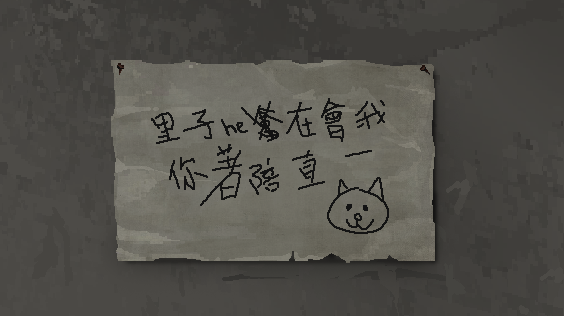 我會在he子里
一直陪著你